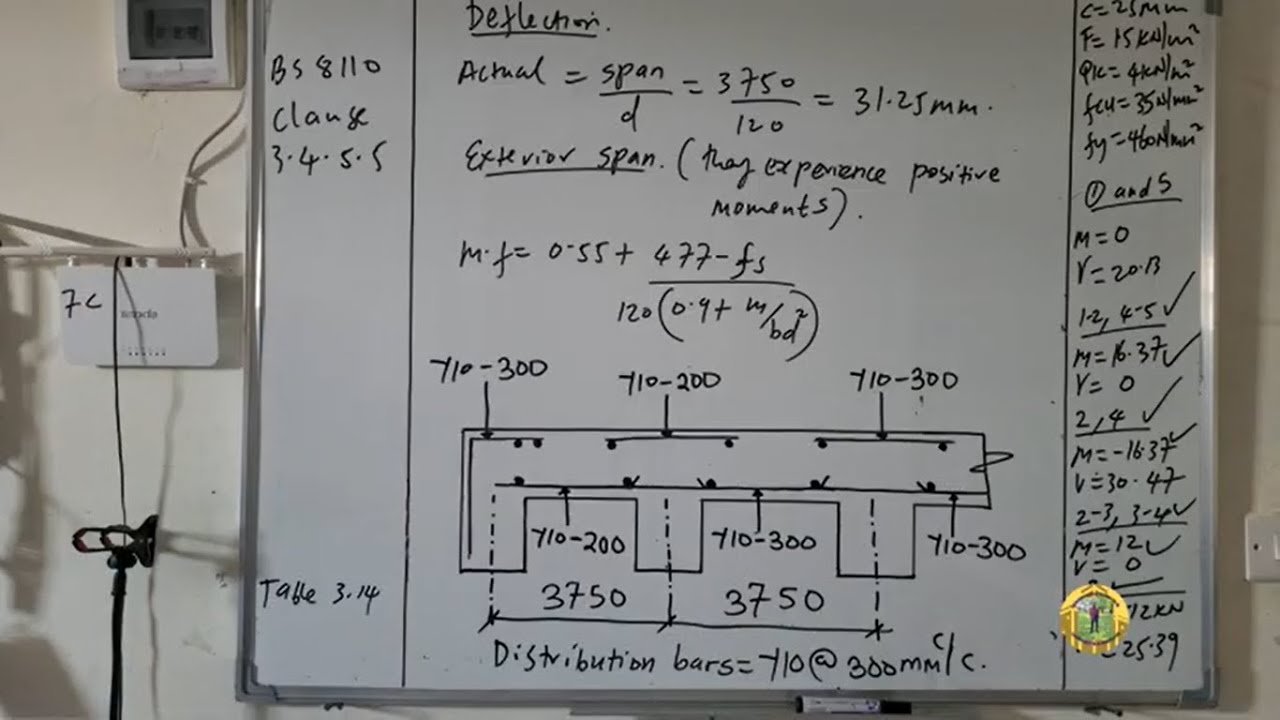 BS 8110
Clause
3.4.5.5
Table 3.14
7C
Deflection.
Actual = span/d = 3750/120 = 31.25mm.
Exterior span. (they experience positive
moments).
m.f = 0.55 + 477-fs
120(0.9+ m/bd²)
Y10-300
Y10-200
Y10-300
Y10-200
Y10-300
Y10-300
3750
3750
Distribution bars = Y10@300mm c/c.
C=25mm
F=15KN/m²
qk=4KN/m²
fcu=35N/mm²
fy=460N/mm²
① and 5
M=0
V=20.13
1-2, 4-5 ✓
M=16.37 ✓
V= 0
2, 4 ✓
M=-16.37 ✓
V=30.47
2-3, 3-4 ✓
M=12 ✓
V= 0
12KN
=25.39